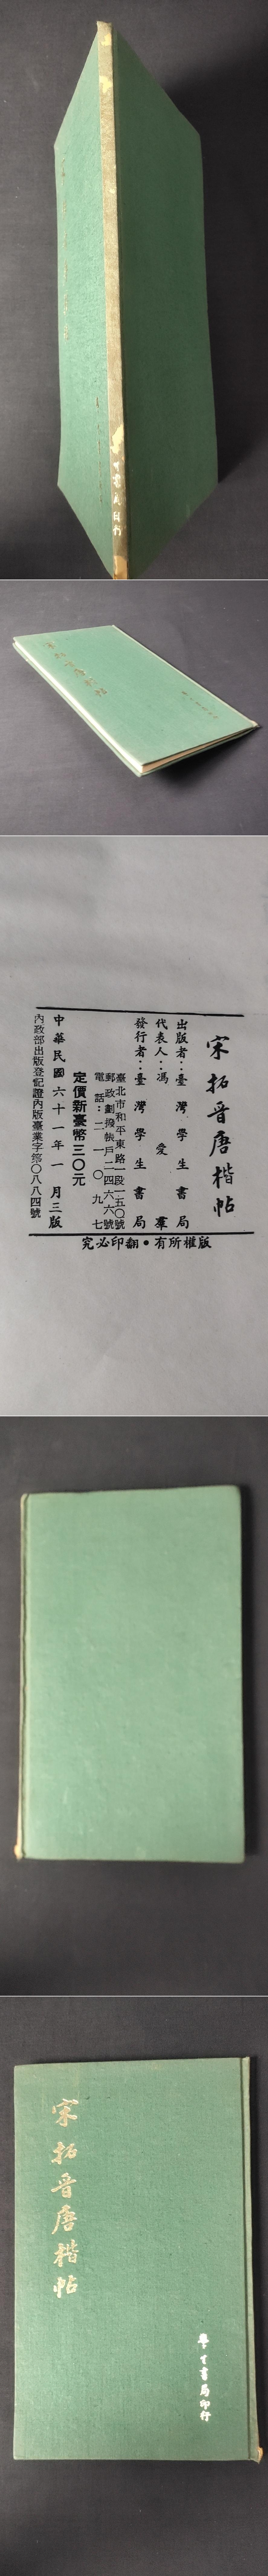 書局印行
宋拓晋唐楷帖
出版者：臺灣學生書局
代表人：馮愛羣
發行者：臺灣學生書局
臺北市和平東路一段一五〇號
郵政劃撥帳戶二四六六號
電話：二一一〇九七
定價新臺幣三〇元
中華民國六十一年一月三版
內政部出版登記證內版臺業字第〇八八四號
究必印翻•有所權版
宋拓晋唐楷帖
學生書局印行